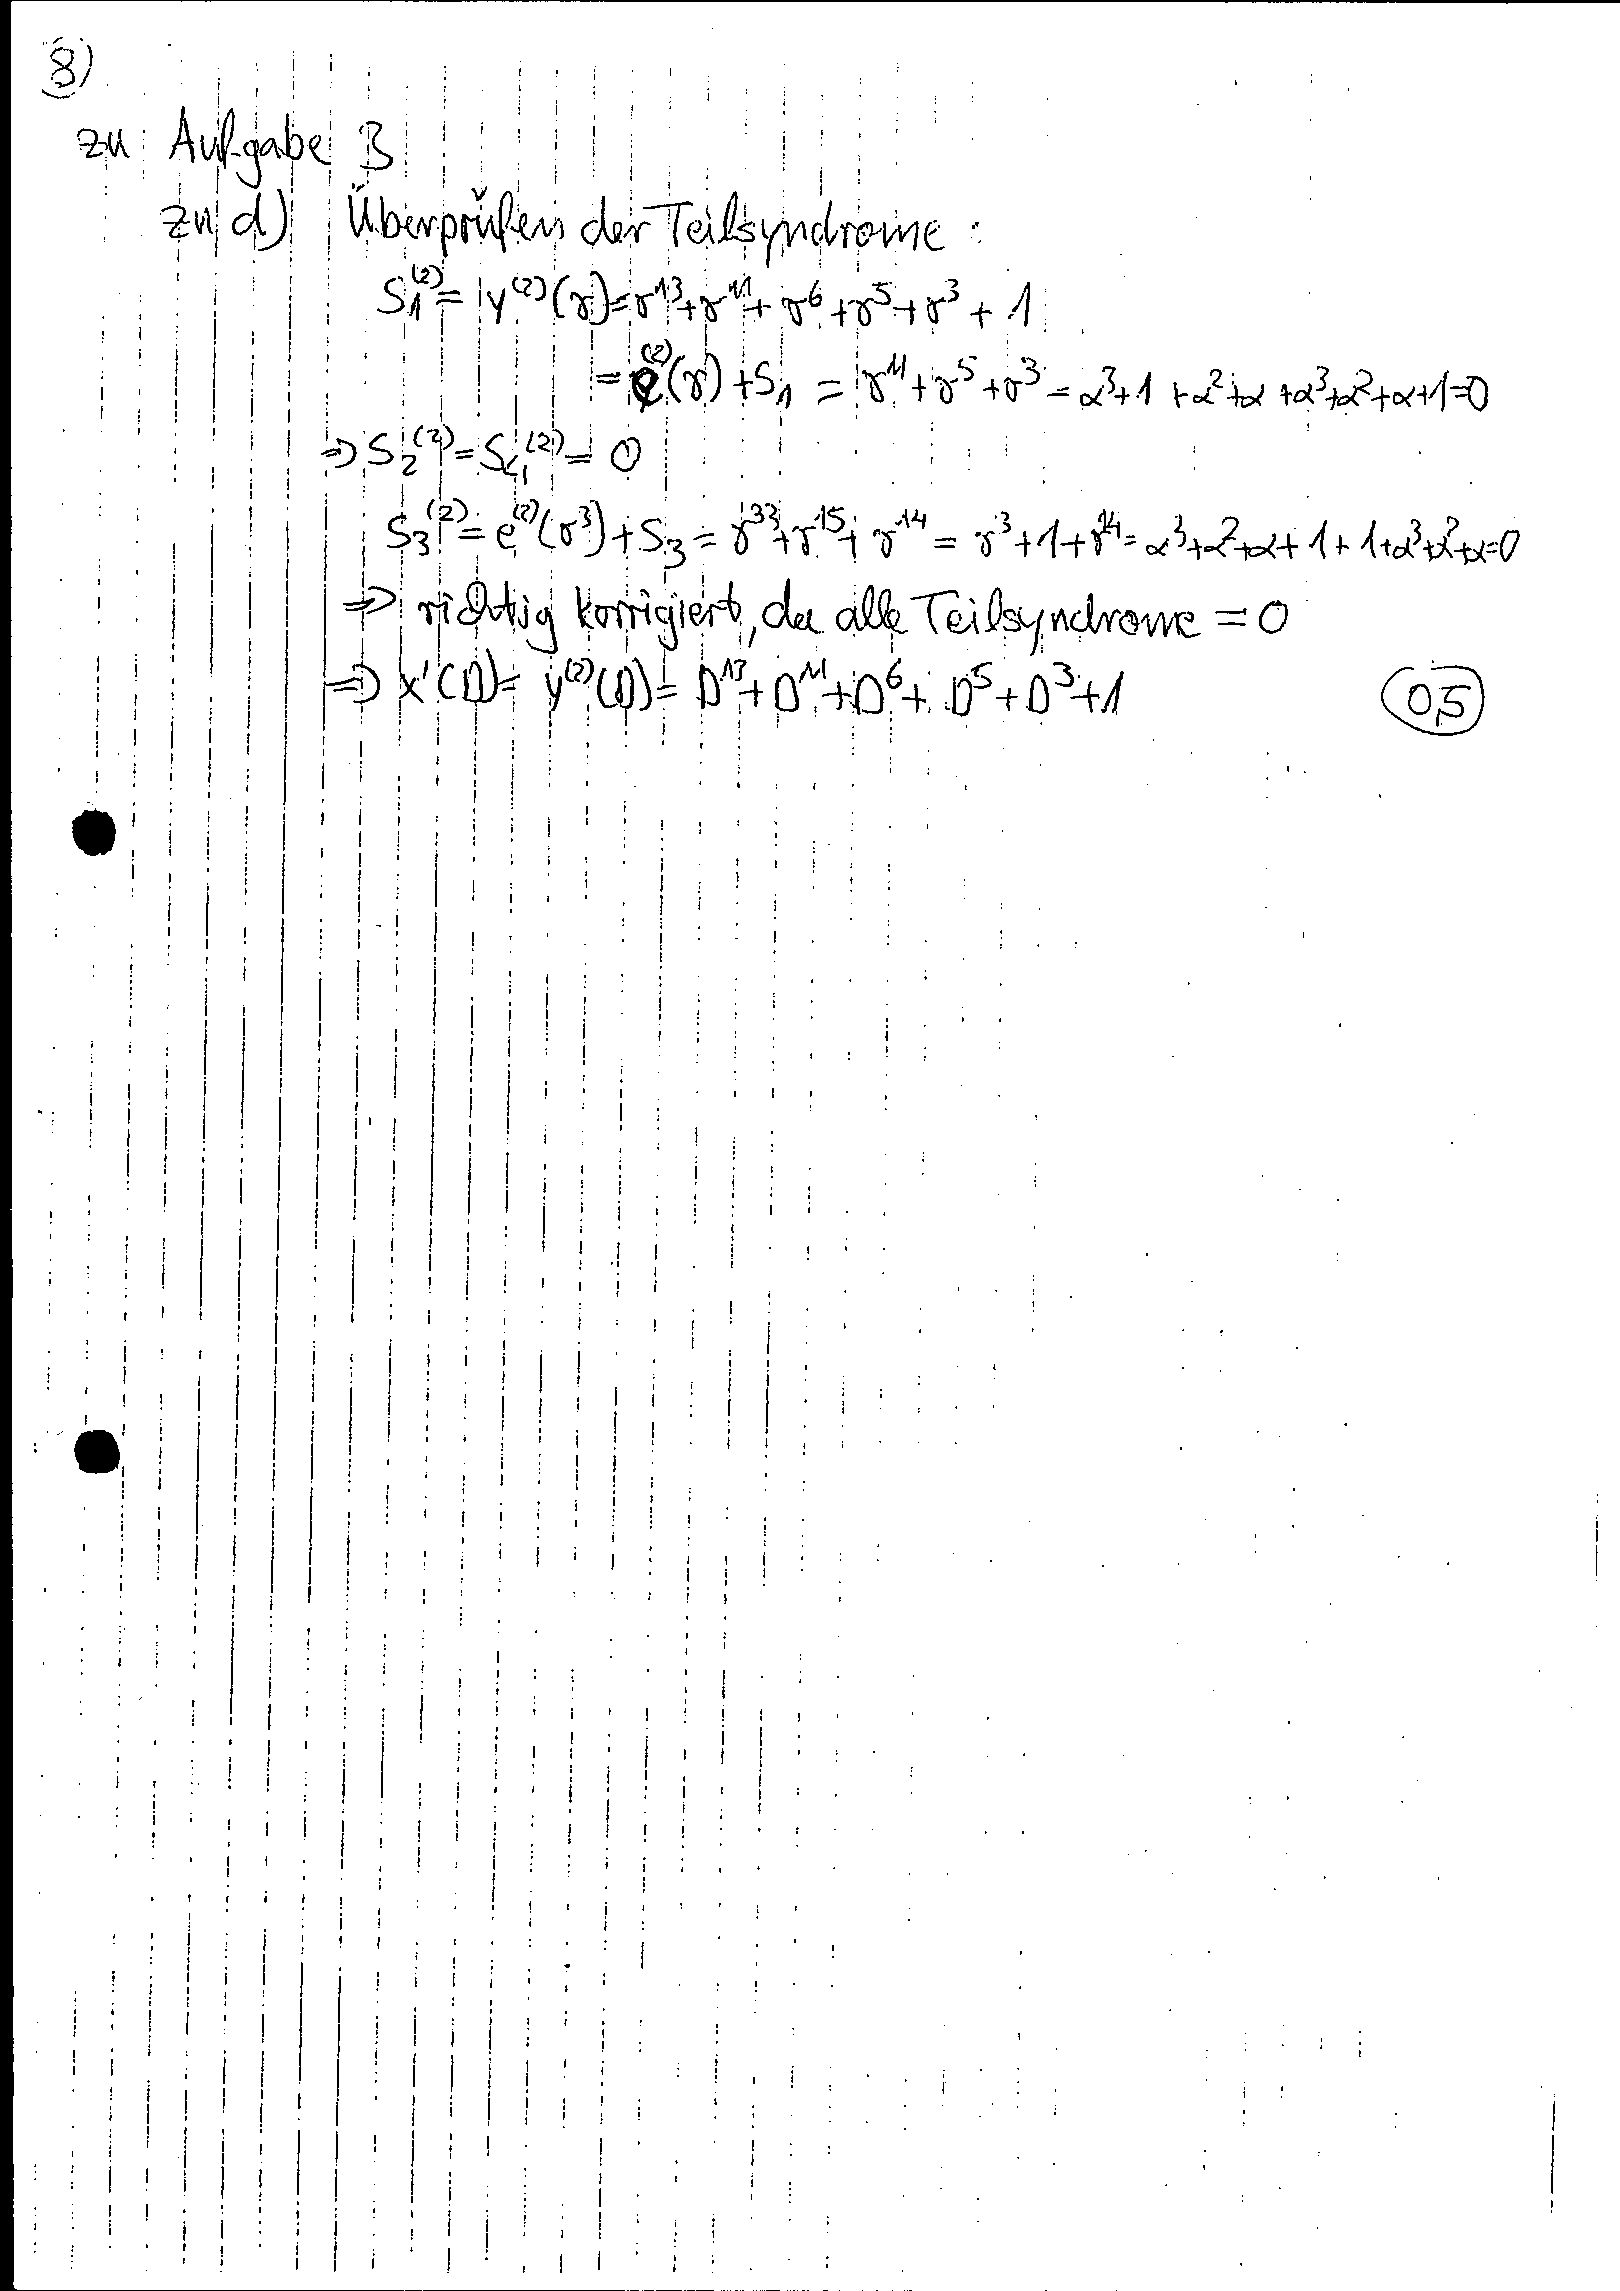 8)
zu Aufgabe 3
zu d) Überprüfen der Teilsyndrome:
S₁⁽²⁾ = y⁽²⁾(γ) = γ¹³ + γ¹¹ + γ⁶ + γ⁵ + γ³ + 1
= e⁽²⁾(γ) + S₁ = γ¹¹ + γ⁵ + γ³ = α³+1 + α²+α + α³+α²+α+1=0
⇒ S₂⁽²⁾ = S₄⁽²⁾ = 0
S₃⁽²⁾ = e⁽²⁾(γ³) + S₃ = γ³³ + γ¹⁵ + γ¹⁴ = γ³ + 1 + γ¹⁴ = α³+α²+α+1+1+α³+α²+α=0
⇒ richtig korrigiert, da alle Teilsyndrome = 0
⇒ x'(D) = y⁽²⁾(D) = D¹³ + D¹¹ + D⁶ + D⁵ + D³ + 1 0,5